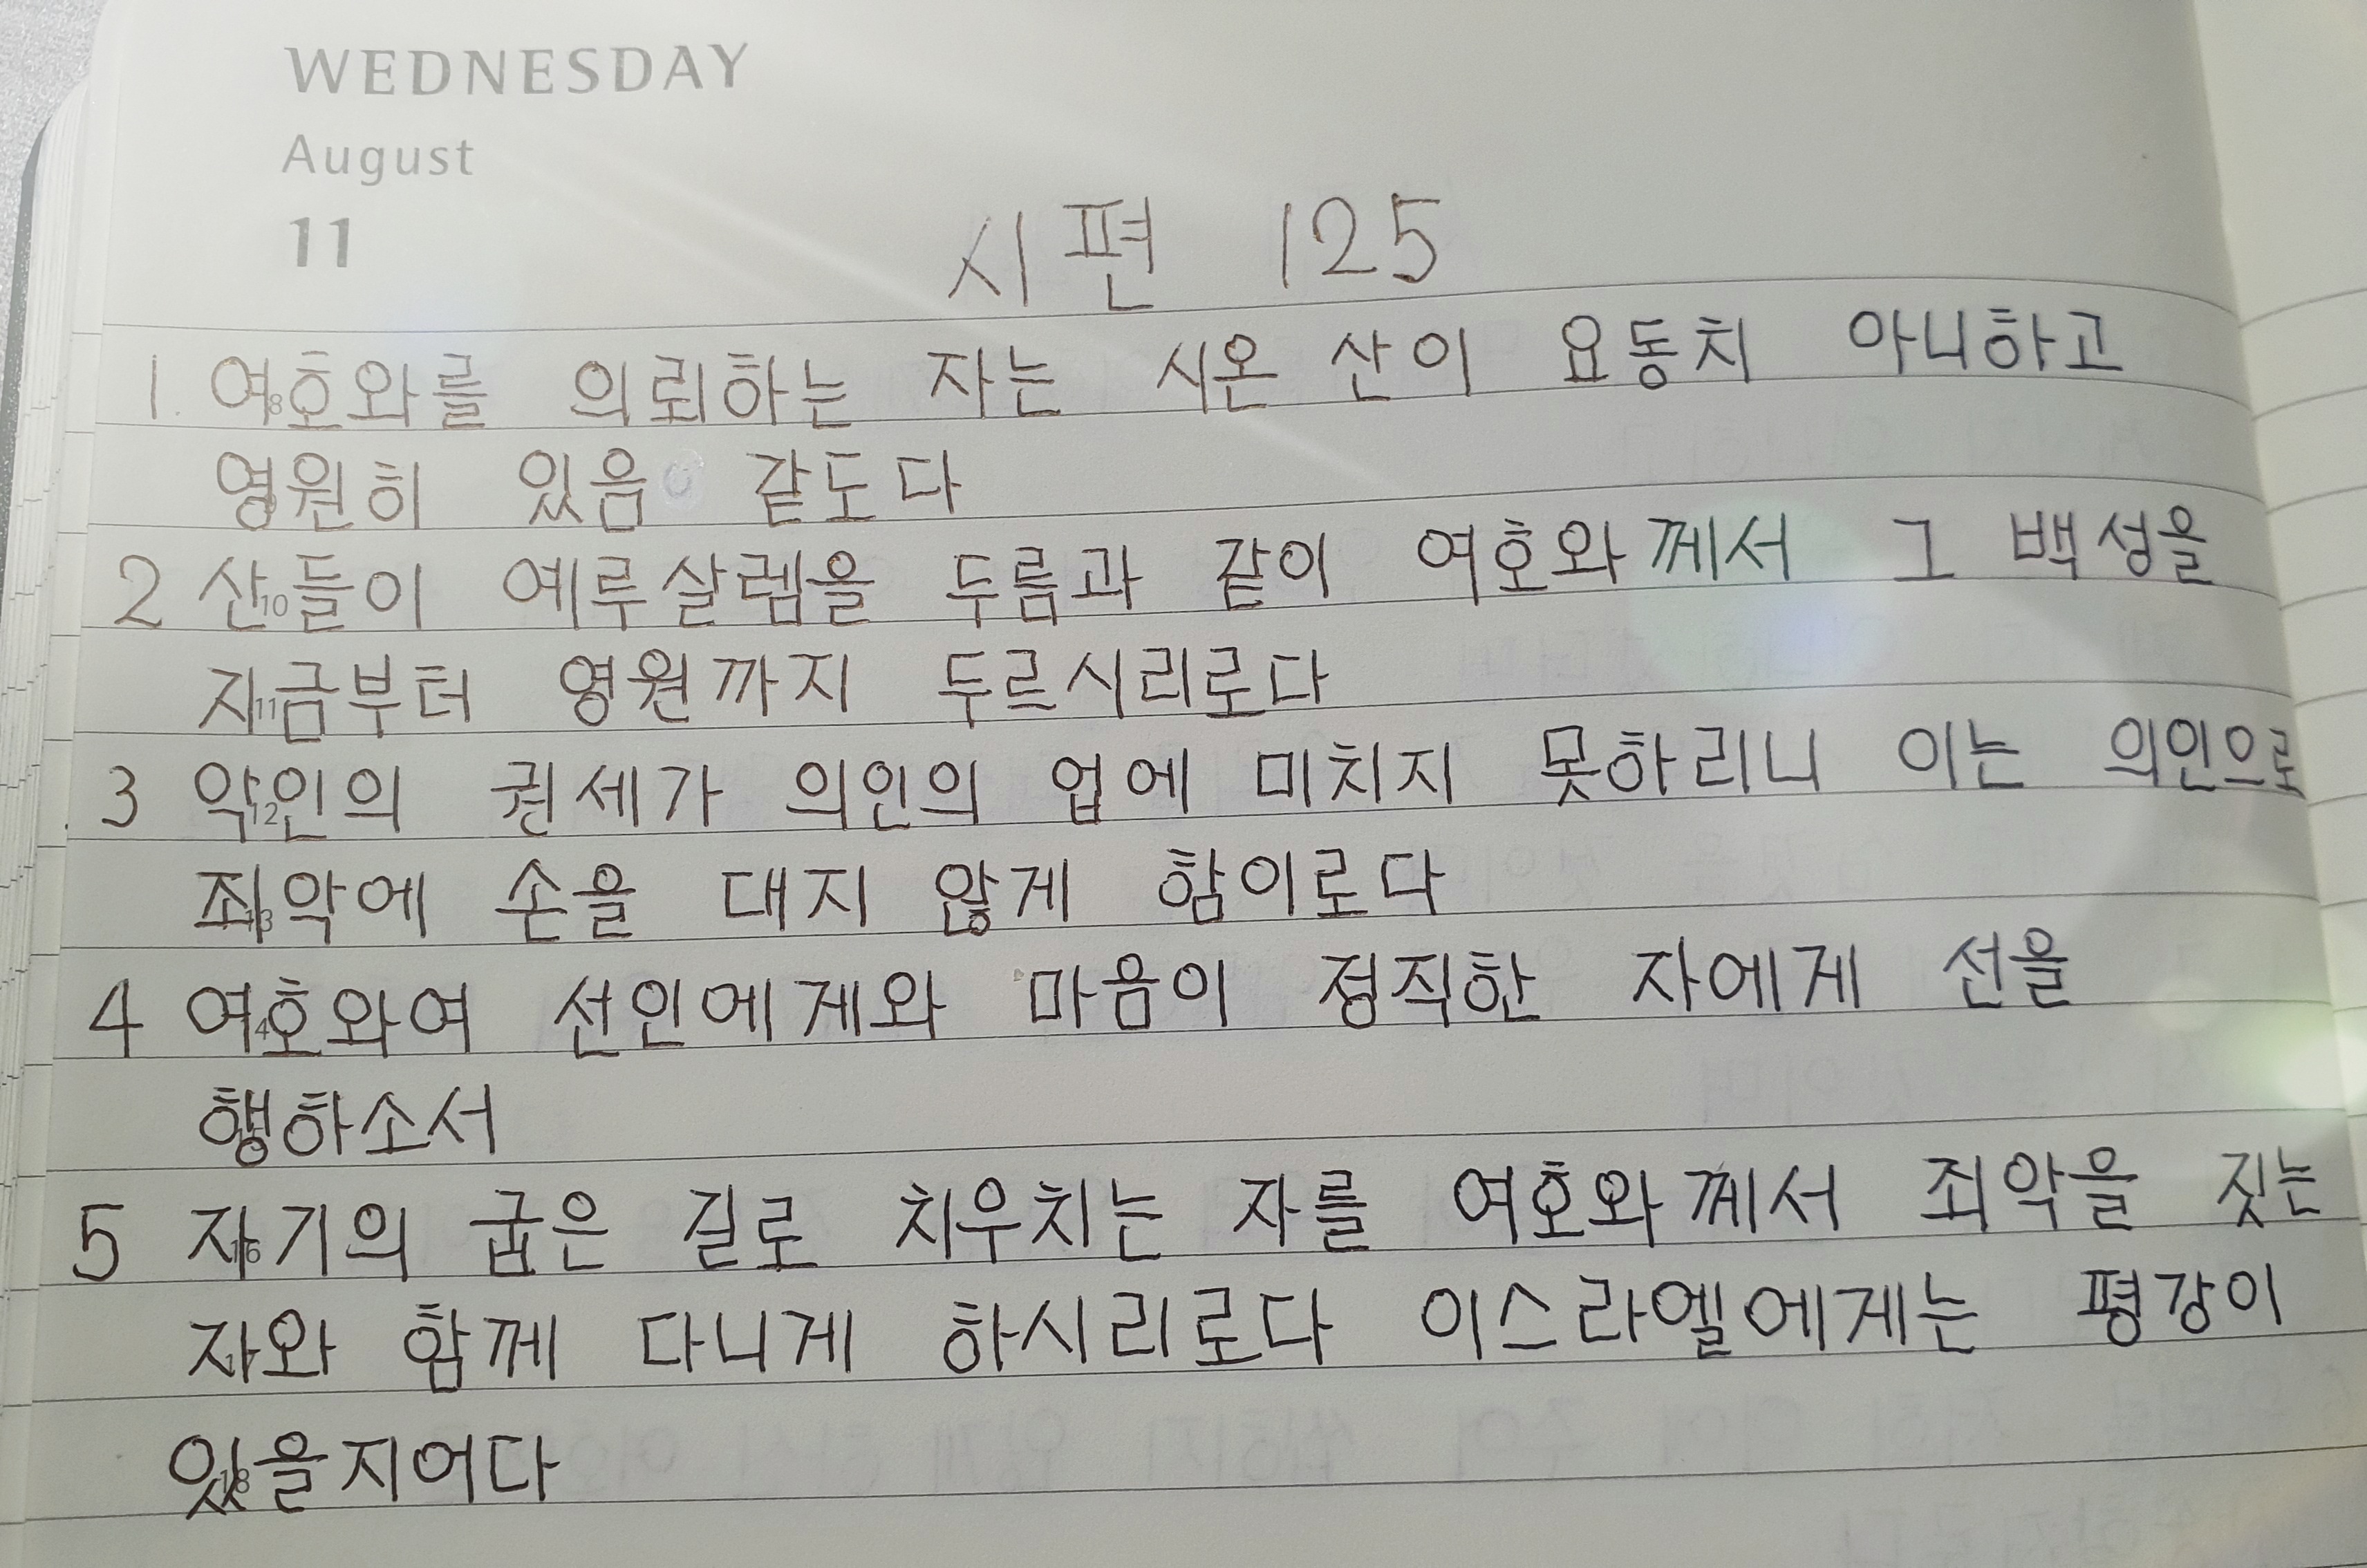 WEDNESDAY
August
11
시편 125
1. 여호와를 의뢰하는 자는 시온 산이 요동치 아니하고
영원히 있음 같도다
2 산들이 예루살렘을 두름과 같이 여호와께서 그 백성을
지금부터 영원까지 두르시리로다
3 악인의 권세가 의인의 업에 미치지 못하리니 이는 의인으로
죄악에 손을 대지 않게 함이로다
4 여호와여 선인에게와 마음이 정직한 자에게 선을
행하소서
5 자기의 굽은 길로 치우치는 자를 여호와께서 죄악을 짓는
자와 함께 다니게 하시리로다 이스라엘에게는 평강이
있을지어다